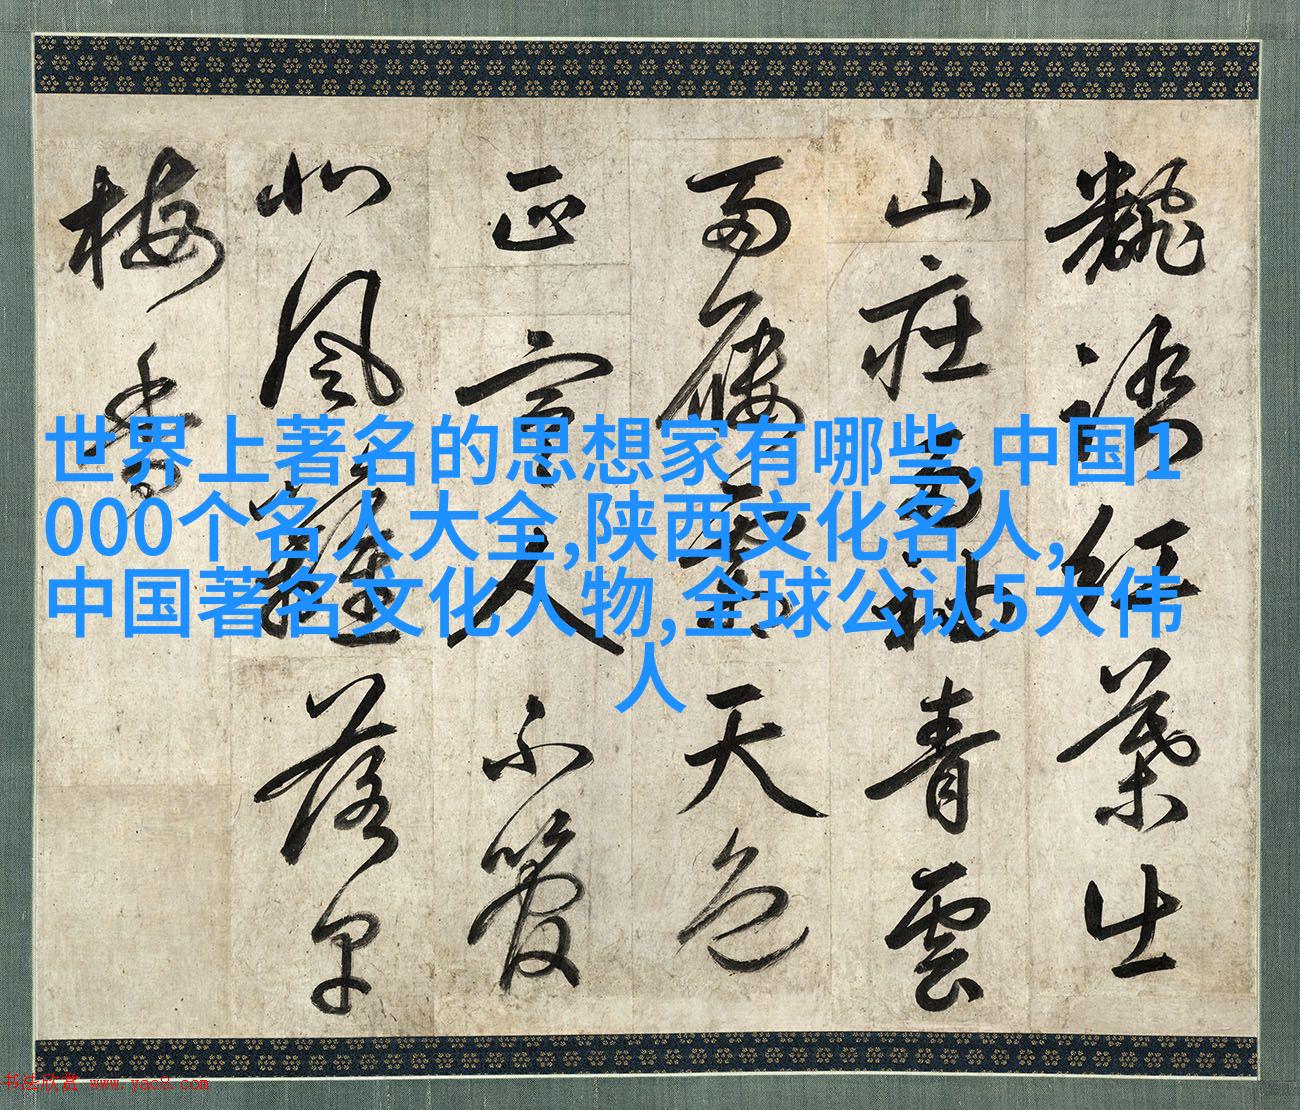 世界上著名的思想家有哪些,中国1
000个名人大全,陕西文化名人,
中国著名文化人物,全球公认5大伟
人
紅葉
山 青雲
雨 天色
正宜人不管
北風難落早
梅香
书法欣赏 www.yac8.com